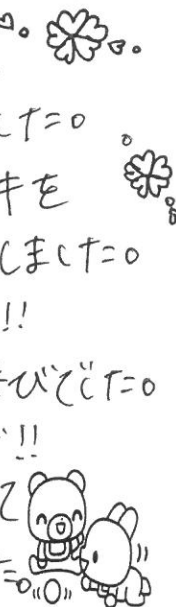 した。
キを
しました。
!!
びでした。
!!
て
た。